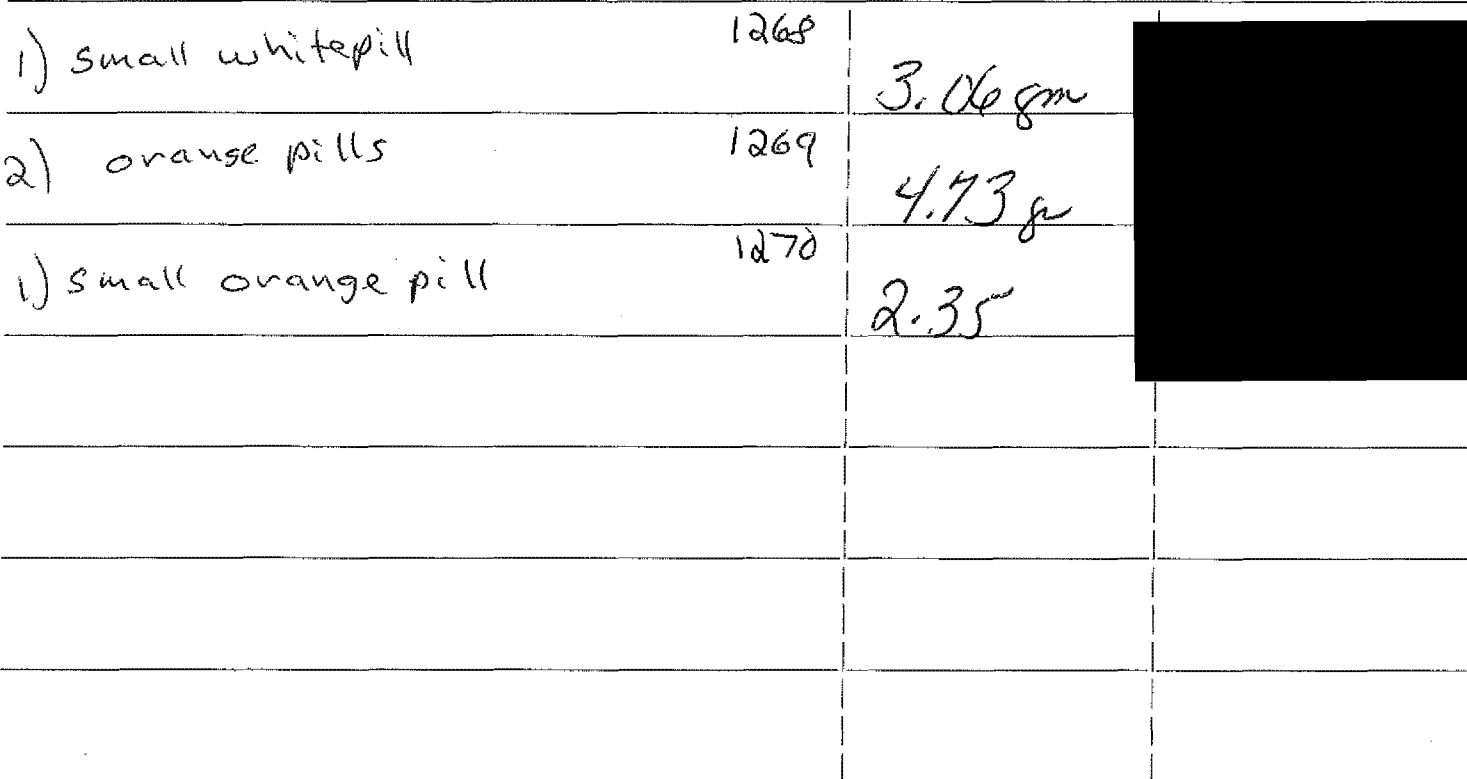 1) small whitepill 1268 3.06 gm
2) orange pills 1269 4.73 gr
1) small orange pill 1270 2.35